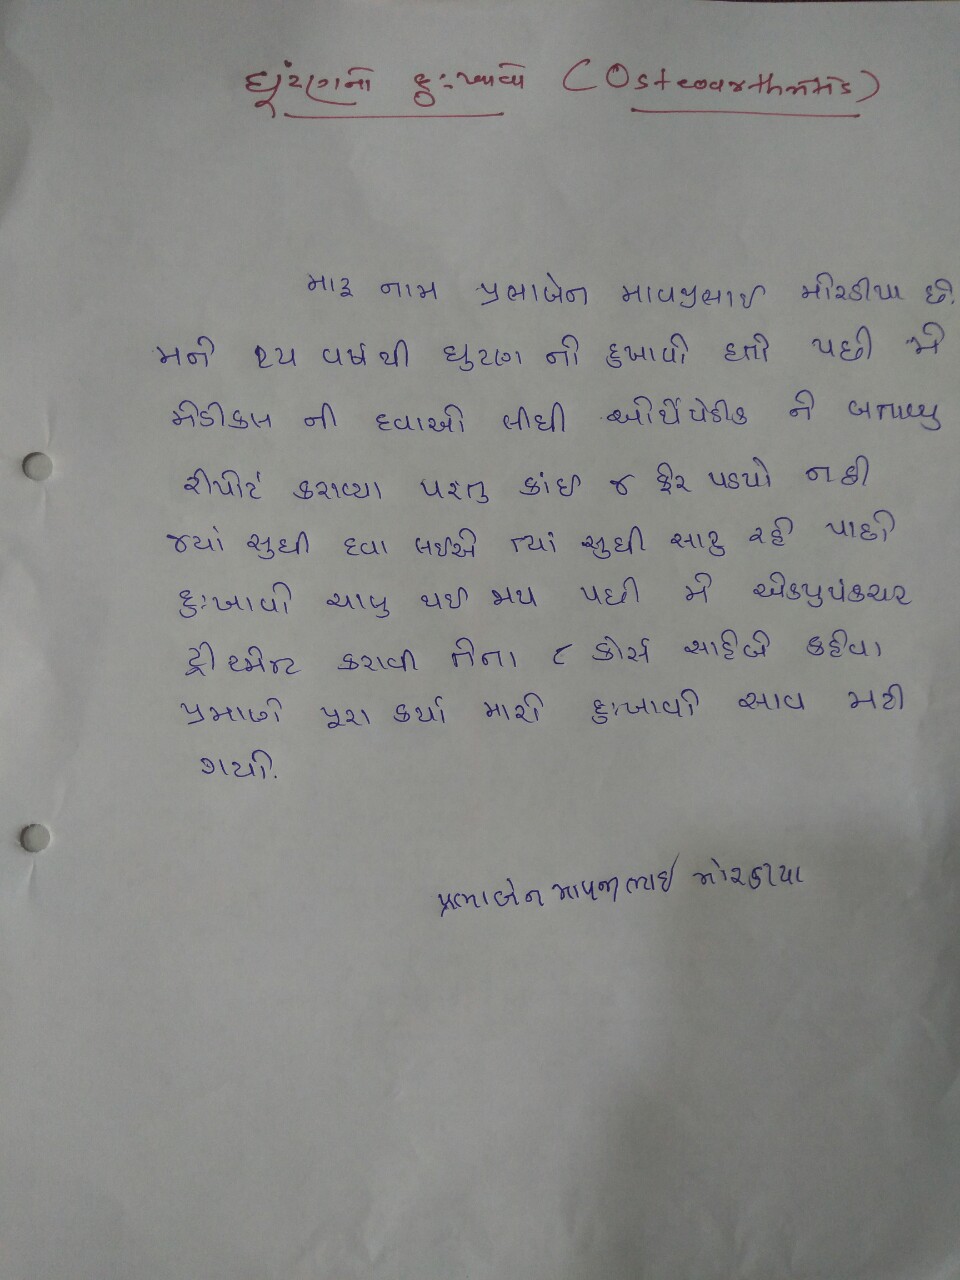 ઘૂંટણનો દુઃખાવો (Osteoarthritis)
મારૂ નામ પ્રભાબેન માવજીભાઇ મોરડીયા છે.
મને ૨૫ વર્ષ થી ઘુટણ નો દુખાવો હતો પછી મે
મેડીકલ ની દવાઓ લીધી ઓર્થોપેડીક ને બતાવ્યુ
રીપોર્ટ કરાવ્યા પરતુ કાંઇ જ ફેર પડયો નહી
જયાં સુધી દવા લઇએ ત્યાં સુધી સારુ રહે પાછો
દુઃખાવો ચાલુ થઇ જાય પછી મે એકયુપંકચર
ટ્રીટમેન્ટ કરાવી તેના ૮ કોર્સ સાહેબે કહેવા
પ્રમાણે પૂરા કર્યા મારો દુઃખાવો સાવ મટી
ગયો.
પ્રભાબેન માવજીભાઇ મોરડીયા